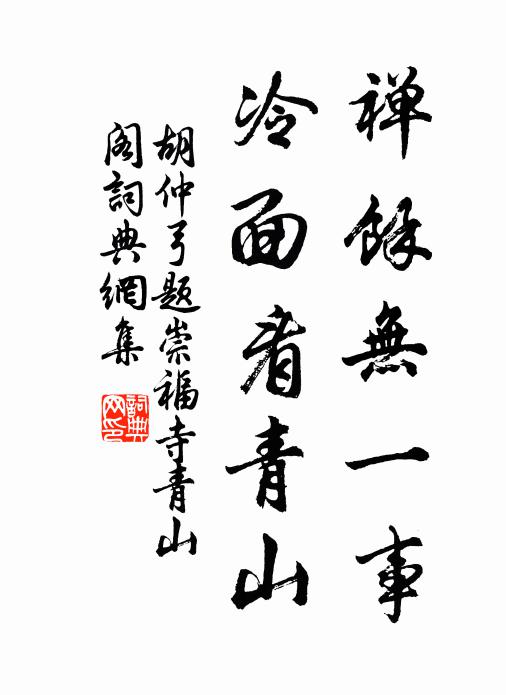 禅餘無一事
冷面看青山
胡仲弓題崇福寺青山
閣詞典網集
詞典
网印